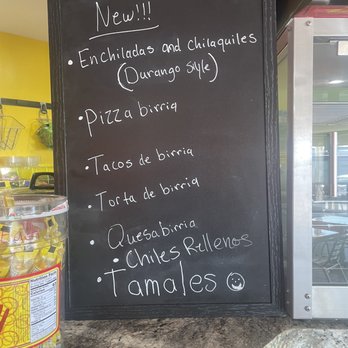 New!!!
• Enchiladas and chilaquiles
(Durango style)
• Pizza birria
• Tacos de birria
• Torta de birria
• Quesabirria
• Chiles Rellenos
• Tamales ☺